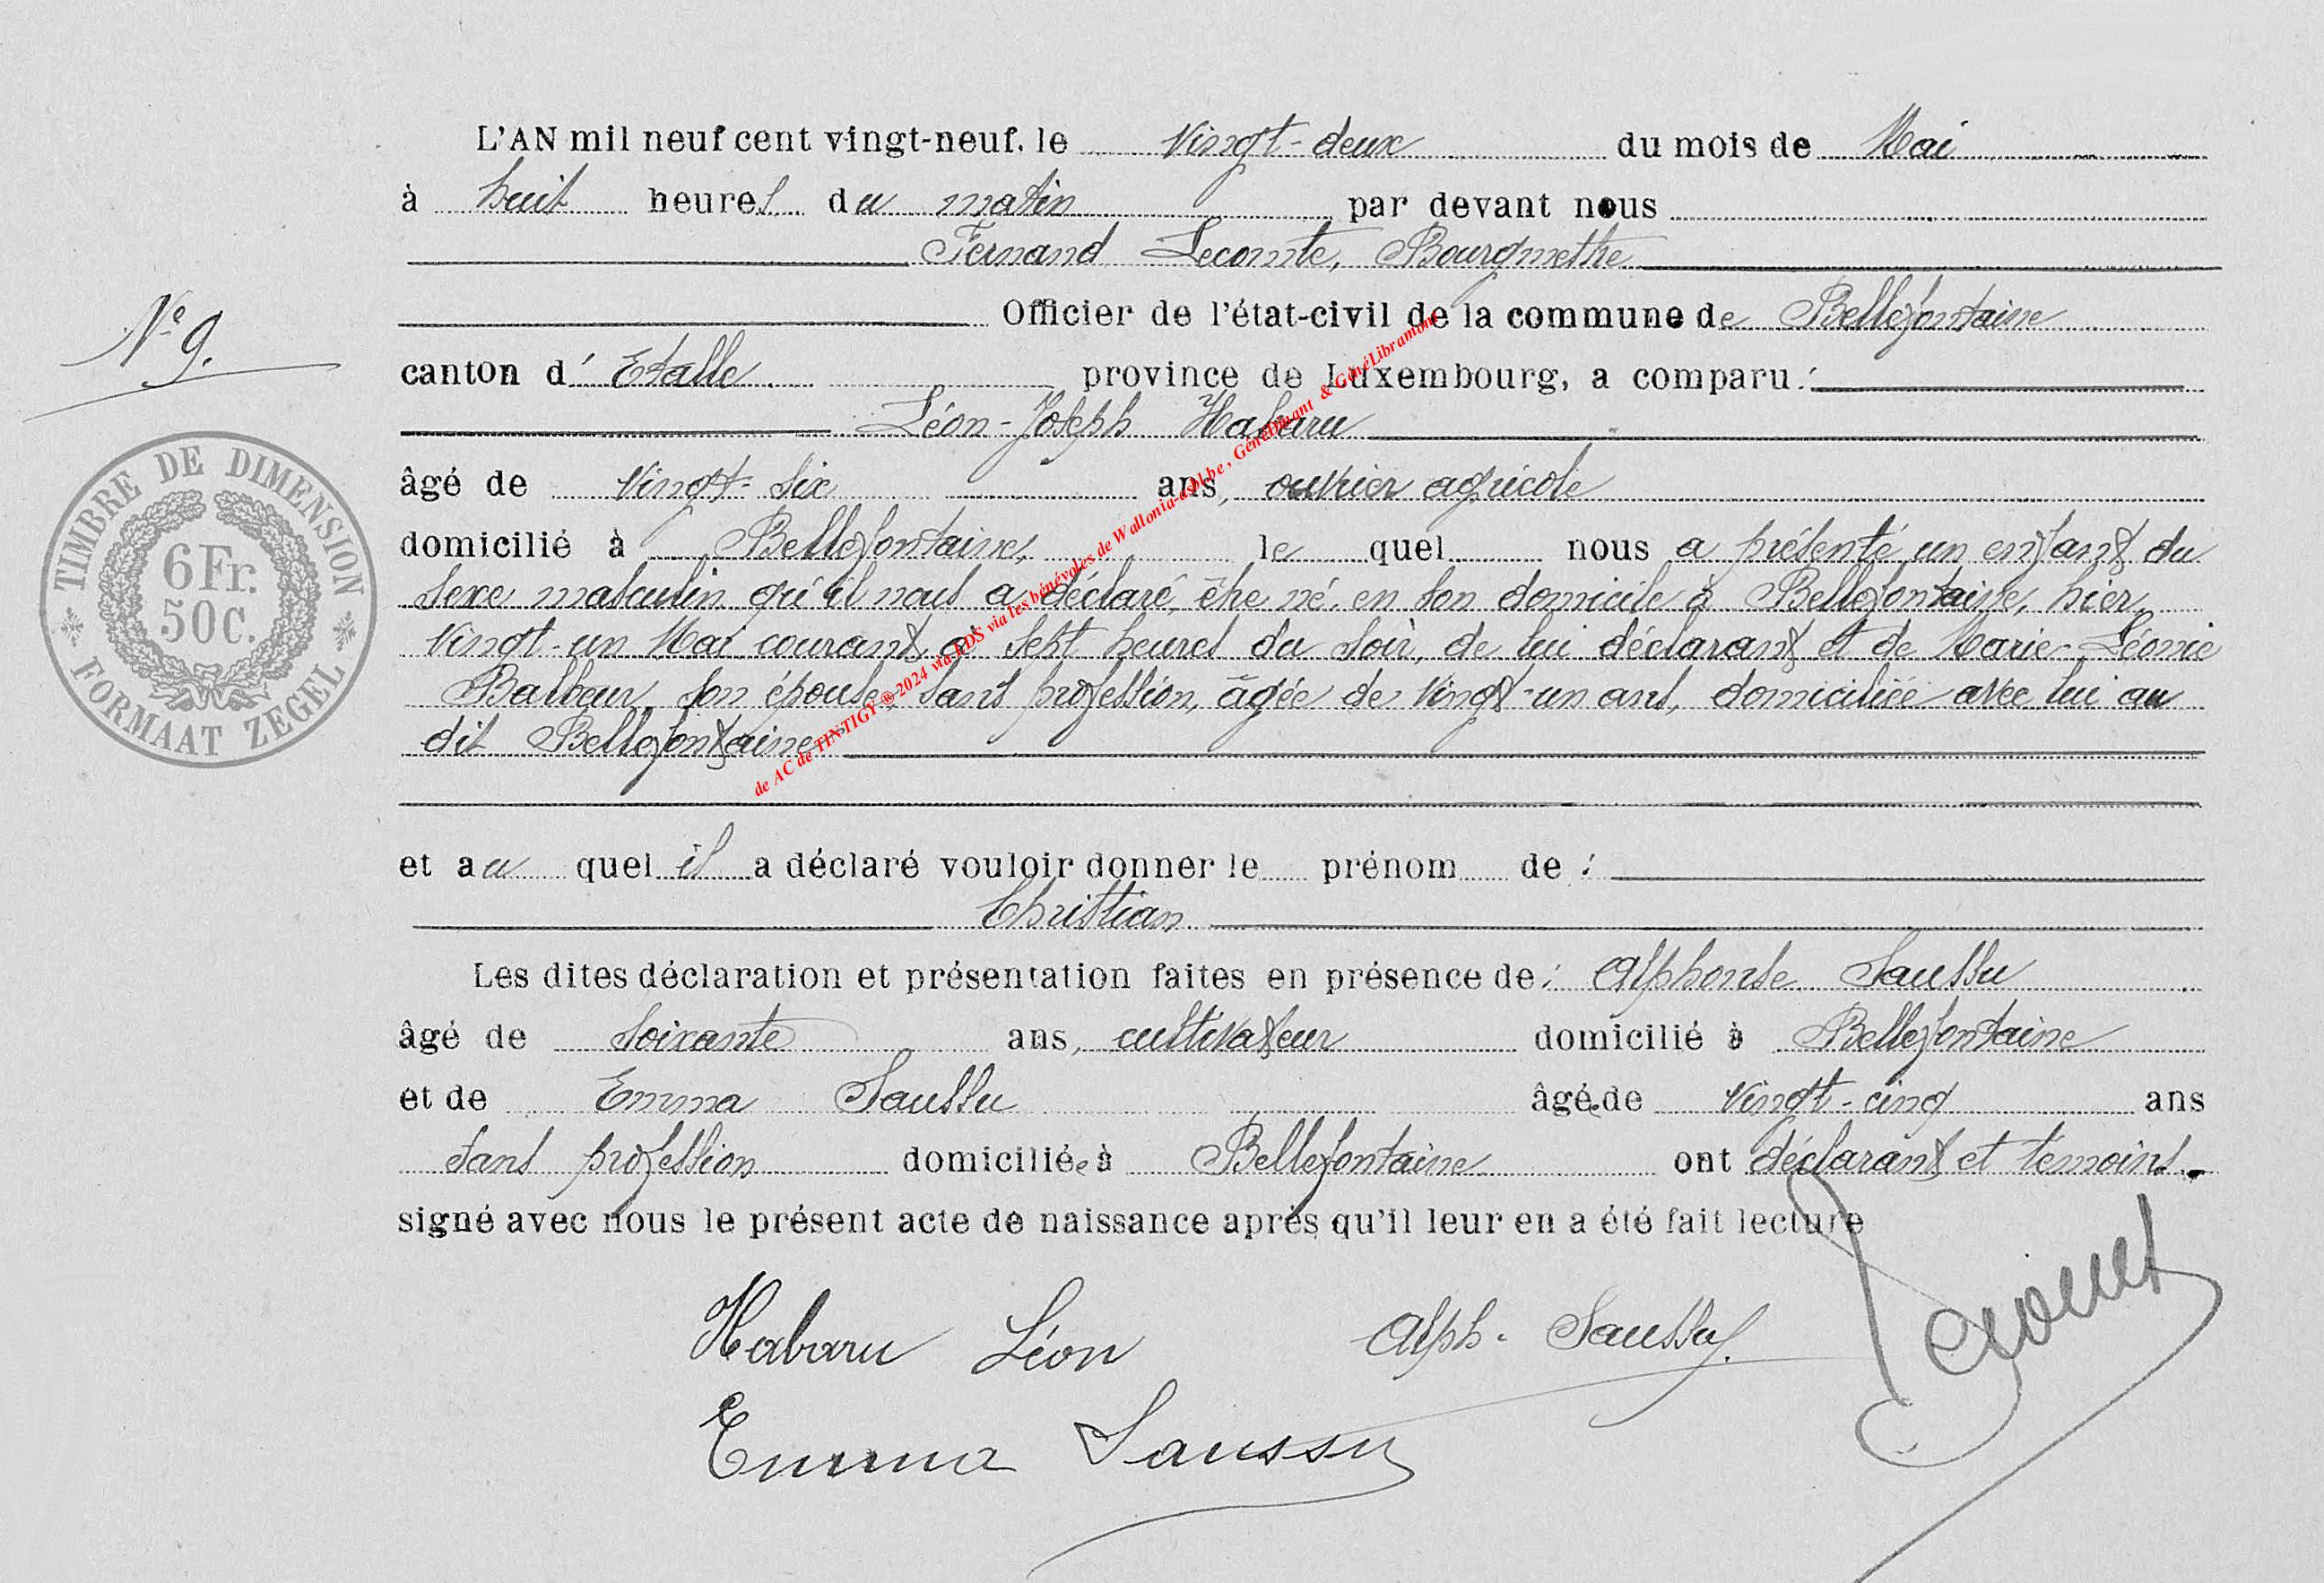 L'AN mil neuf cent vingt-neuf, le Vingt-deux du mois de Mai
à huit heures du matin par devant nous
Fernand Lecomte, Bourgmestre
Officier de l'état-civil de la commune de Bellefontaine
N° 9.
canton d' Etalle province de Luxembourg, a comparu :
Léon-Joseph Habaru
âgé de Vingt-six ans, ouvrier agricole
domicilié à Bellefontaine, le quel nous a présenté un enfant du
sexe masculin qu'il nous a déclaré être né, en son domicile à Bellefontaine, hier,
Vingt-un Mai courant à sept heures du soir, de lui déclarant et de Marie-Léonie
Balbeur, son épouse, sans profession, âgée de Vingt-un ans, domiciliée avec lui au
dit Bellefontaine
TIMBRE DE DIMENSION
6 Fr.
50 C.
FORMAAT ZEGEL
de AC de TINTIGY ® 2024 via FDS via les bénévoles de Wallonia-asbl.be , GénéDinant & GénéLibramont
et au quel il a déclaré vouloir donner le prénom de :
Christian
Les dites déclaration et présentation faites en présence de : Alphonse Saussu
âgé de soixante ans, cultivateur domicilié à Bellefontaine
et de Emma Saussu âgée de Vingt-cinq ans
sans profession domiciliée à Bellefontaine ont déclarant et témoins
signé avec nous le présent acte de naissance après qu'il leur en a été fait lecture
Habaru Léon Alph. Saussu
Emma Saussu